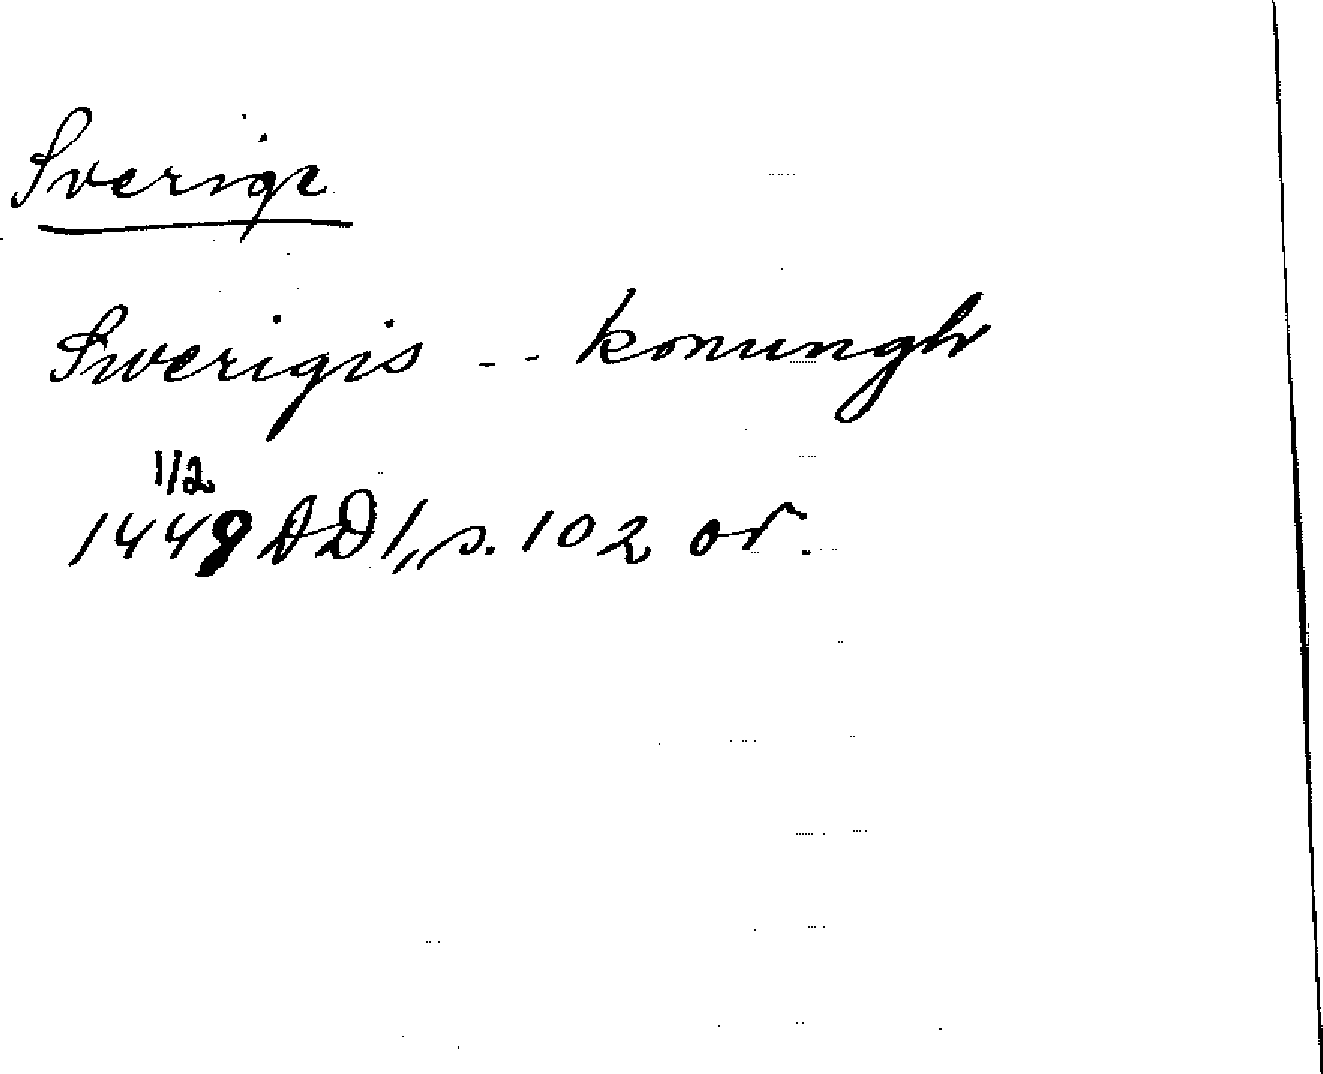 Sverige
Swerigis - - konungh
1/2
1448 DD 1, s. 102 or.